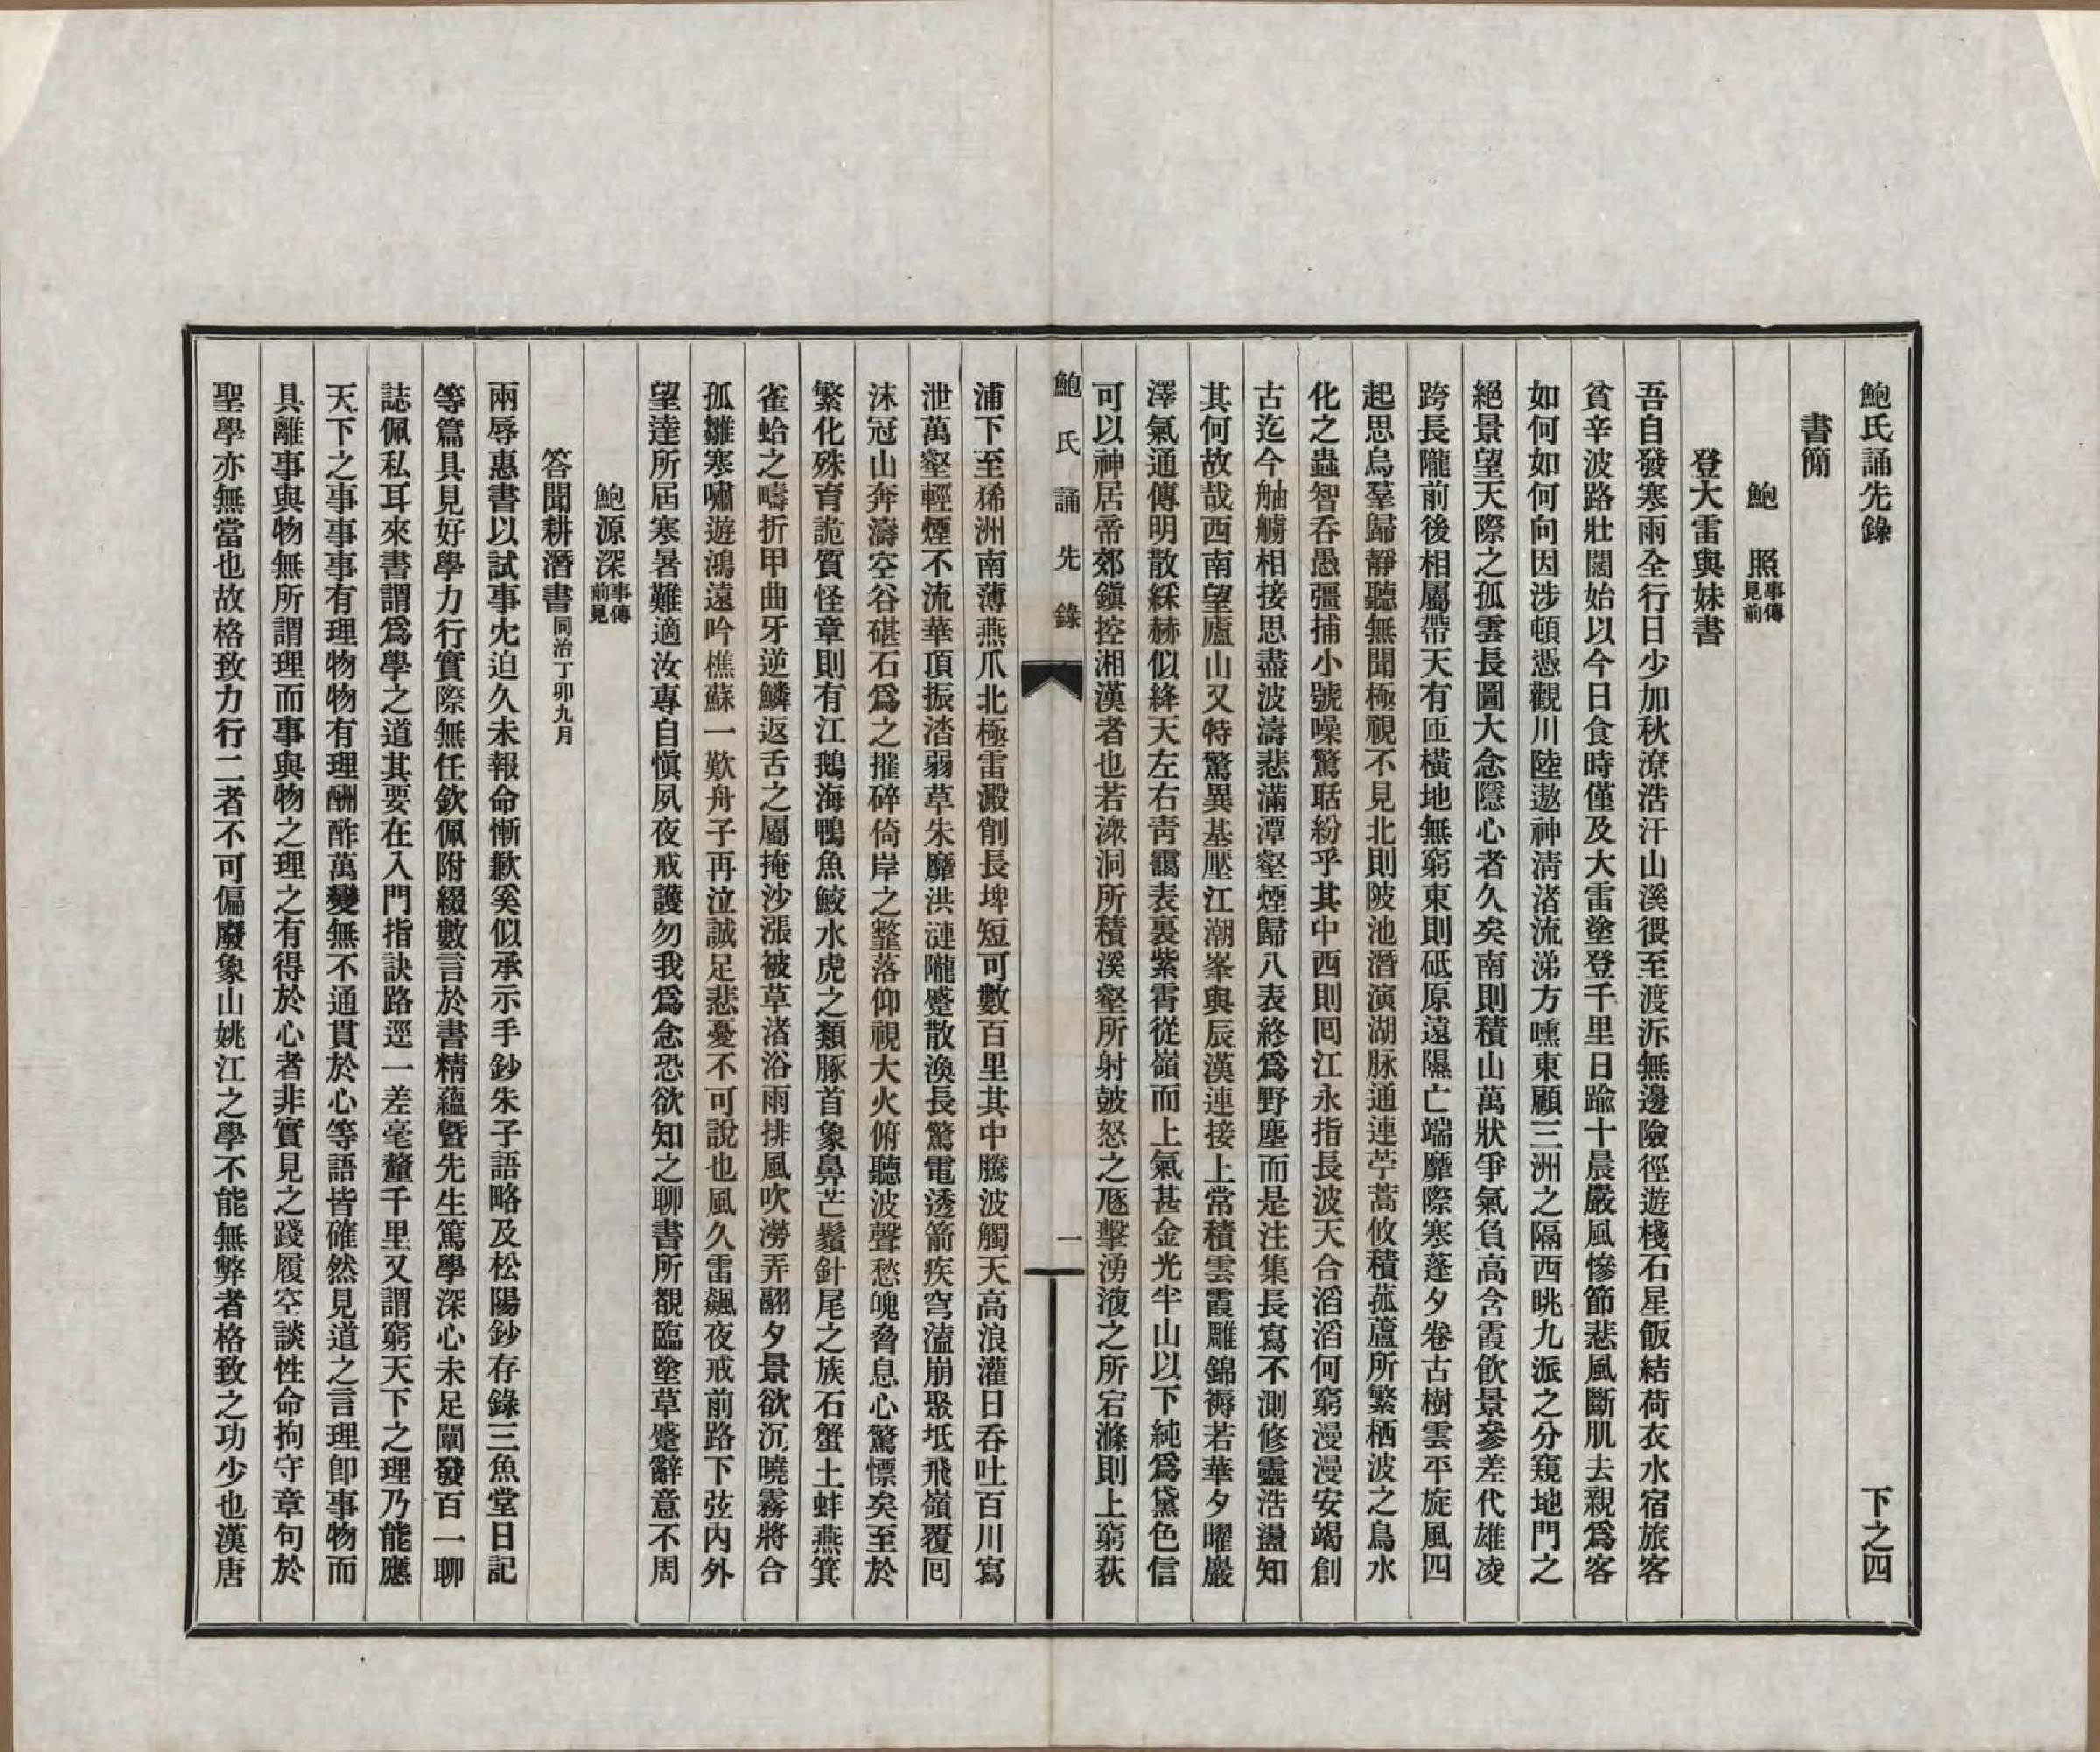 鮑氏誦先錄 下之四
書簡
鮑 照事傳見前
登大雷與妹書
吾自發寒雨全行日少加秋潦浩汗山溪猥至渡泝無邊險徑遊棧石星飯結荷衣水宿旅客
貧辛波路壯闊始以今日食時僅及大雷塗登千里日踰十晨嚴風慘節悲風斷肌去親爲客
如何如何向因涉頓憑觀川陸遨神清渚流涕方曛東顧三洲之隔西眺九派之分窺地門之
絕景望天際之孤雲長圖大念隱心者久矣南則積山萬狀爭氣負高含霞飲景參差代雄凌
跨長隴前後相屬帶天有匝橫地無窮東則砥原遠隰亡端靡際寒蓬夕卷古樹雲平旋風四
起思鳥羣歸靜聽無聞極視不見北則陂池潛演湖脉通連苧蒿攸積菰蘆所繁栖波之鳥水
化之蟲智吞愚彊捕小號噪驚聒紛乎其中西則囘江永指長波天合滔滔何窮漫漫安竭創
古迄今舳艫相接思盡波濤悲滿潭壑煙歸八表終爲野塵而是注集長寫不測修靈浩盪知
其何故哉西南望廬山又特驚異基壓江潮峯與辰漢連接上常積雲霞雕錦褥若華夕曜巖
澤氣通傳明散綵赫似絳天左右靑靄表裏紫霄從嶺而上氣甚金光半山以下純爲黛色信
可以神居帝郊鎭控湘漢者也若潨洞所積溪壑所射鼓怒之豗擊湧澓之所宕滌則上窮荻
鮑氏誦先錄 一
浦下至狶洲南薄燕爪北極雷澱削長埤短可數百里其中騰波觸天高浪灌日吞吐百川寫
泄萬壑輕煙不流華頂振涾弱草朱靡洪漣隴蹙散渙長驚電透箭疾穹溘崩聚坻飛嶺覆囘
沬冠山奔濤空谷碪石爲之摧碎倚岸之䪠落仰視大火俯聽波聲愁魄脅息心驚慓矣至於
繁化殊育詭質怪章則有江鵝海鴨魚鮫水虎之類豚首象鼻芒鬚針尾之族石蟹土蚌燕箕
雀蛤之疇折甲曲牙逆鱗返舌之屬掩沙漲被草渚浴雨排風吹澇弄翮夕景欲沉曉霧將合
孤雛寒嘯遊鴻遠吟樵蘇一歎舟子再泣誠足悲憂不可說也風久雷飆夜戒前路下弦內外
望達所屆寒暑難適汝專自愼夙夜戒護勿我爲念恐欲知之聊書所覩臨塗草蹙辭意不周
鮑源深事傳前見
答聞耕潛書同治丁卯九月
兩辱惠書以試事尣迫久未報命慚歉奚似承示手鈔朱子語略及松陽鈔存錄三魚堂日記
等篇具見好學力行實際無任欽佩附綴數言於書精蘊曁先生篤學深心未足闡發百一聊
誌佩私耳來書謂爲學之道其要在入門指訣路逕一差毫釐千里又謂窮天下之理乃能應
天下之事事事有理物物有理酬酢萬變無不通貫於心等語皆確然見道之言理卽事物而
具離事與物無所謂理而事與物之理之有得於心者非實見之踐履空談性命拘守章句於
聖學亦無當也故格致力行二者不可偏廢象山姚江之學不能無弊者格致之功少也漢唐